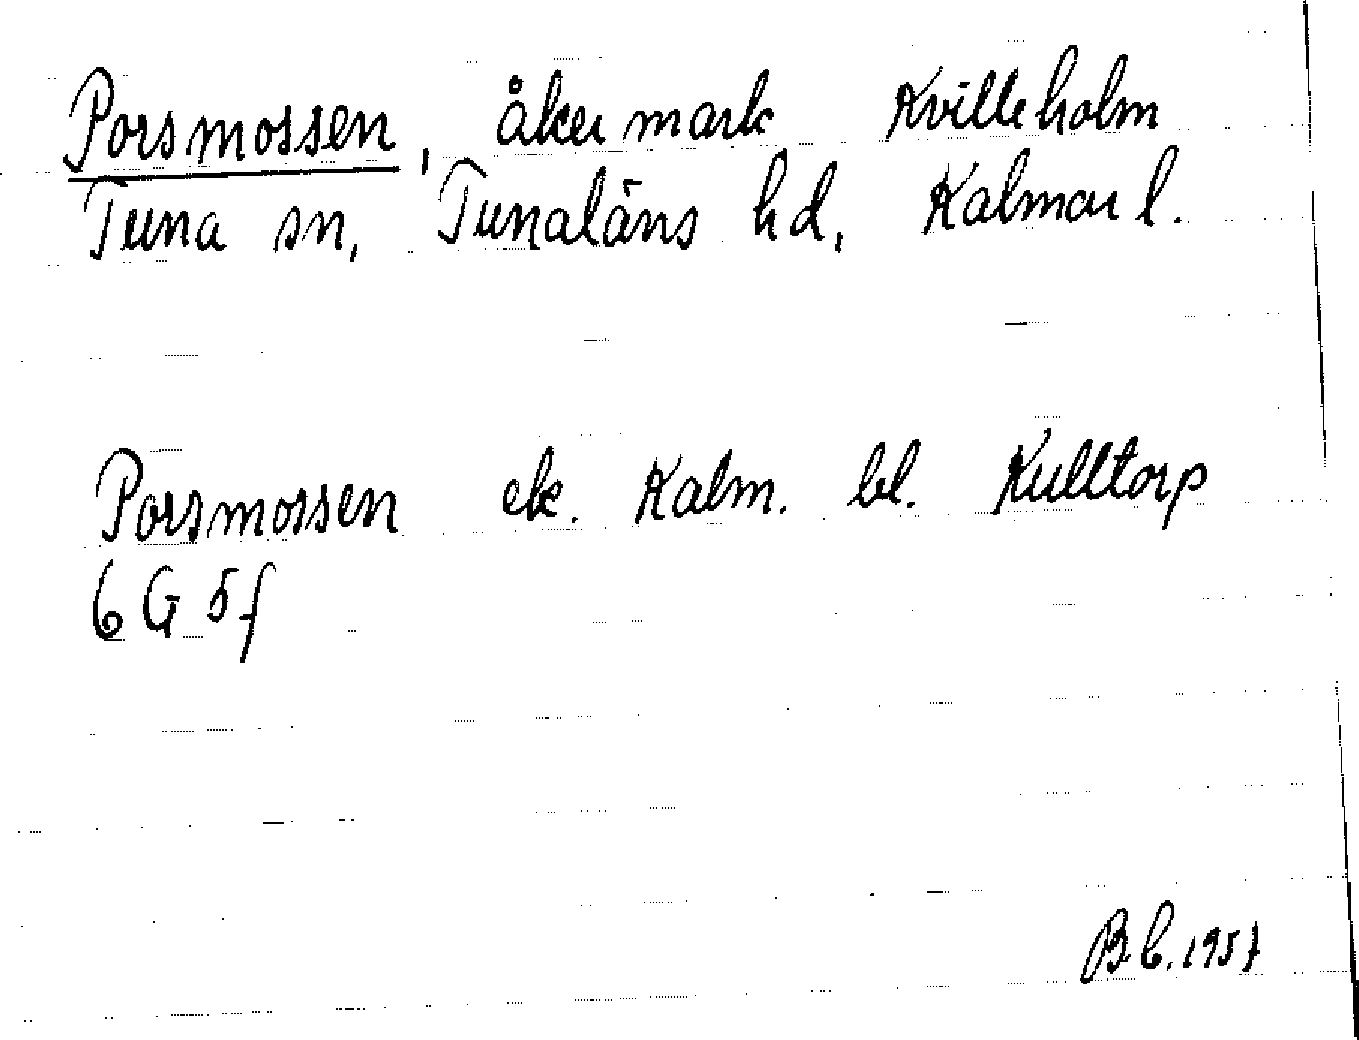 Porsmossen, åkermark Kvilleholm
Tuna sn, Tunaläns hd, Kalmar l.
Porsmossen ek. Kalm. bl. Kulltorp
6 G 5 f
B.b. 1957